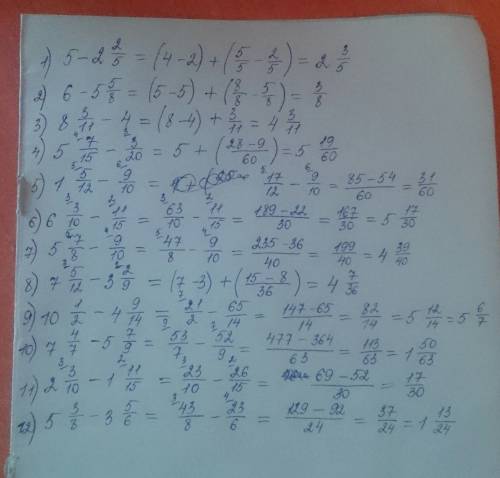 1) 5 - 2 2/5 = (4-2) + (5/5 - 2/5) = 2 3/5
2) 6 - 5 5/8 = (5-5) + (8/8 - 5/8) = 3/8
3) 8 3/11 - 4 = (8-4) + 3/11 = 4 3/11
4) 5 7/15 - 3/20 = 5 + (28-9/60) = 5 19/60
5) 1 5/12 - 9/10 = 17/12 - 9/10 = 85-54/60 = 31/60
6) 6 3/10 - 11/15 = 63/10 - 11/15 = 189-22/30 = 167/30 = 5 17/30
7) 5 7/8 - 9/10 = 47/8 - 9/10 = 235-36/40 = 199/40 = 4 39/40
8) 7 5/12 - 3 2/9 = (7-3) + (15-8/36) = 4 7/36
9) 10 1/2 - 4 9/14 = 21/2 - 65/14 = 147-65/14 = 82/14 = 5 12/14 = 5 6/7
10) 7 4/7 - 5 7/9 = 53/7 - 52/9 = 477-364/63 = 113/63 = 1 50/63
11) 2 3/10 - 1 11/15 = 23/10 - 26/15 = 69-52/30 = 17/30
12) 5 3/8 - 3 5/6 = 43/8 - 23/6 = 129-92/24 = 37/24 = 1 13/24